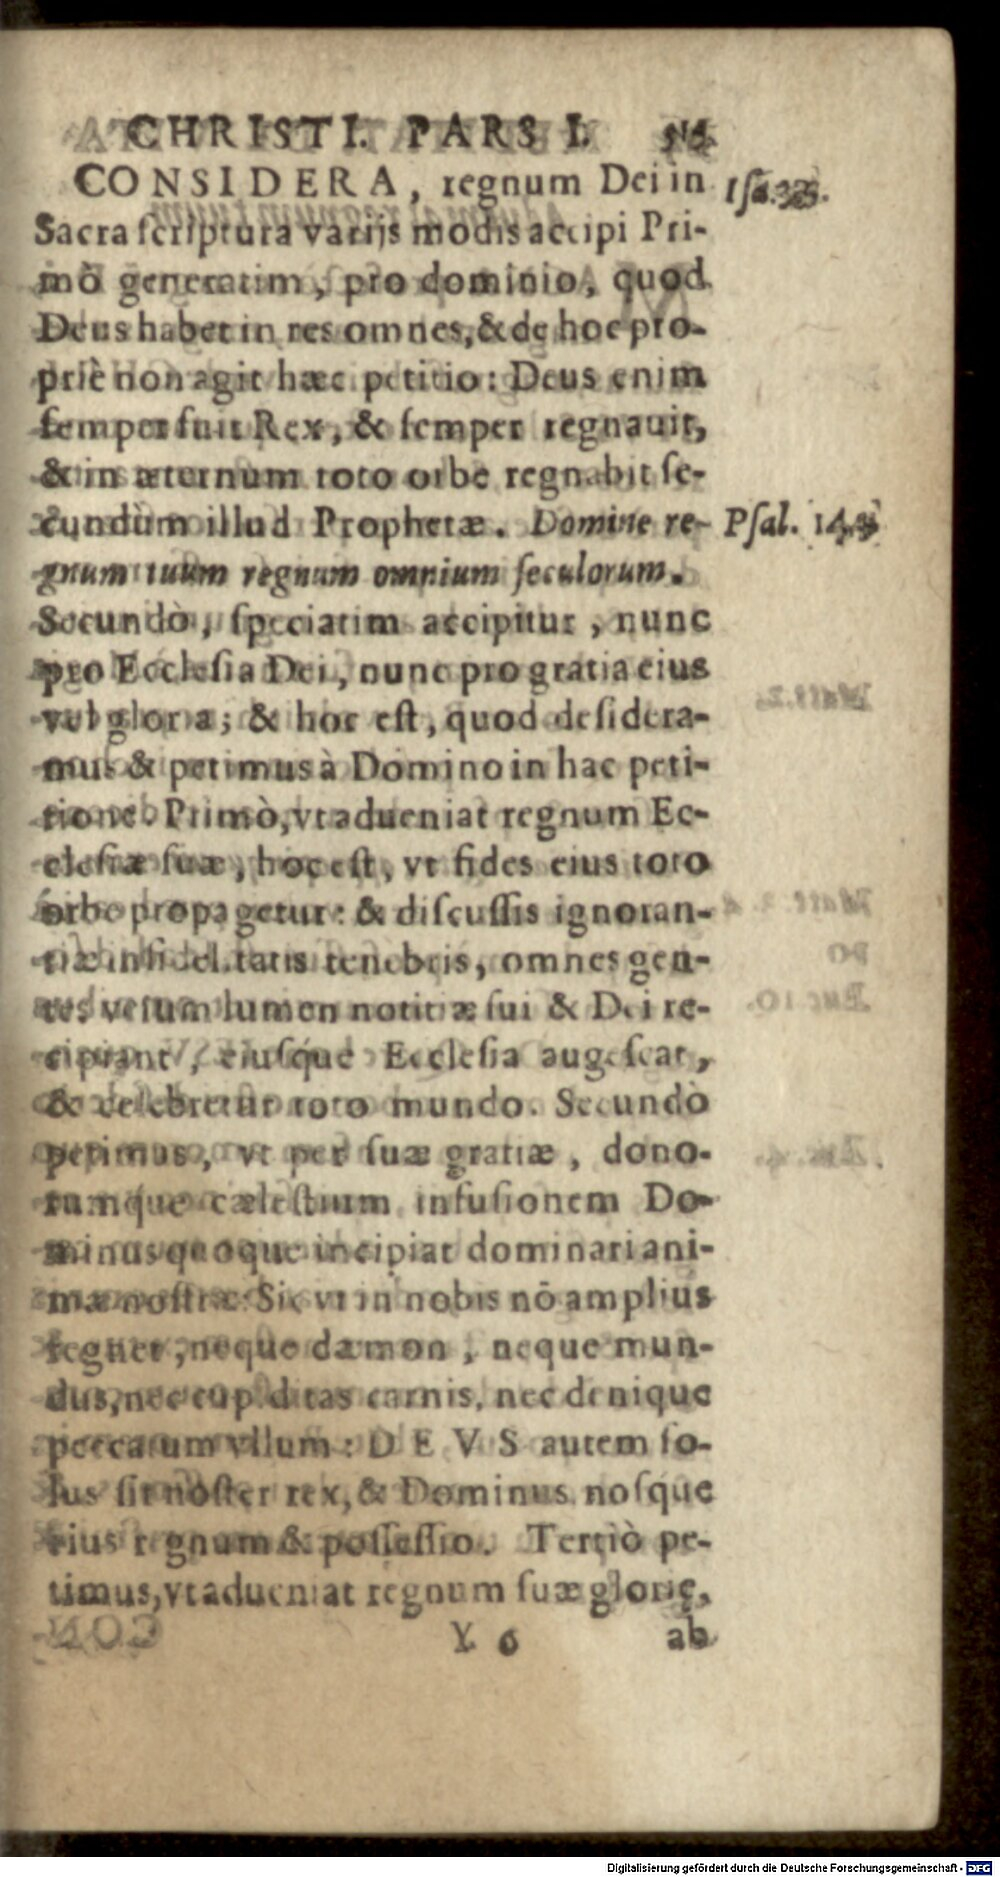 CHRISTI. PARS I.
CONSIDERA, regnum Dei in
Isa. 33.
Sacra scriptura varijs modis accipi Pri-
mò generatim, pro dominio, quod
Deus habet in res omnes, & de hoc pro-
priè non agit hæc petitio: Deus enim
semper fuit Rex, & semper regnauit,
& in æternum toto orbe regnabit se-
cundùm illud Prophetæ. Domine re-
Psal. 144
gnum tuum regnum omnium seculorum.
Secundò, speciatim accipitur, nunc
pro Ecclesia Dei, nunc pro gratia eius
vel gloria; & hoc est, quod desidera-
mus & petimus à Domino in hac peti-
tione. Primò, vt adueniat regnum Ec-
clesiæ suæ, hoc est, vt fides eius toto
orbe propagetur: & discussis ignoran-
tiæ infidelitatis tenebris, omnes gen-
tes verum lumen notitiæ sui & Dei re-
cipiant, eiusque Ecclesia augescat,
& celebretur toto mundo. Secundò
petimus, vt per suæ gratiæ, dono-
rumque cælestium infusionem Do-
minus quoque incipiat dominari ani-
mæ nostræ: Sic vt in nobis nō amplius
regnet, neque dæmon, neque mun-
dus, nec cupiditas carnis, nec denique
peccatum vllum: DEVS autem so-
lus sit noster rex, & Dominus nosque
eius regnum & possessio. Tertiò pe-
timus, vt adueniat regnum suæ glorię,
Y 6
ab
Digitalisierung gefördert durch die Deutsche Forschungsgemeinschaft - DFG